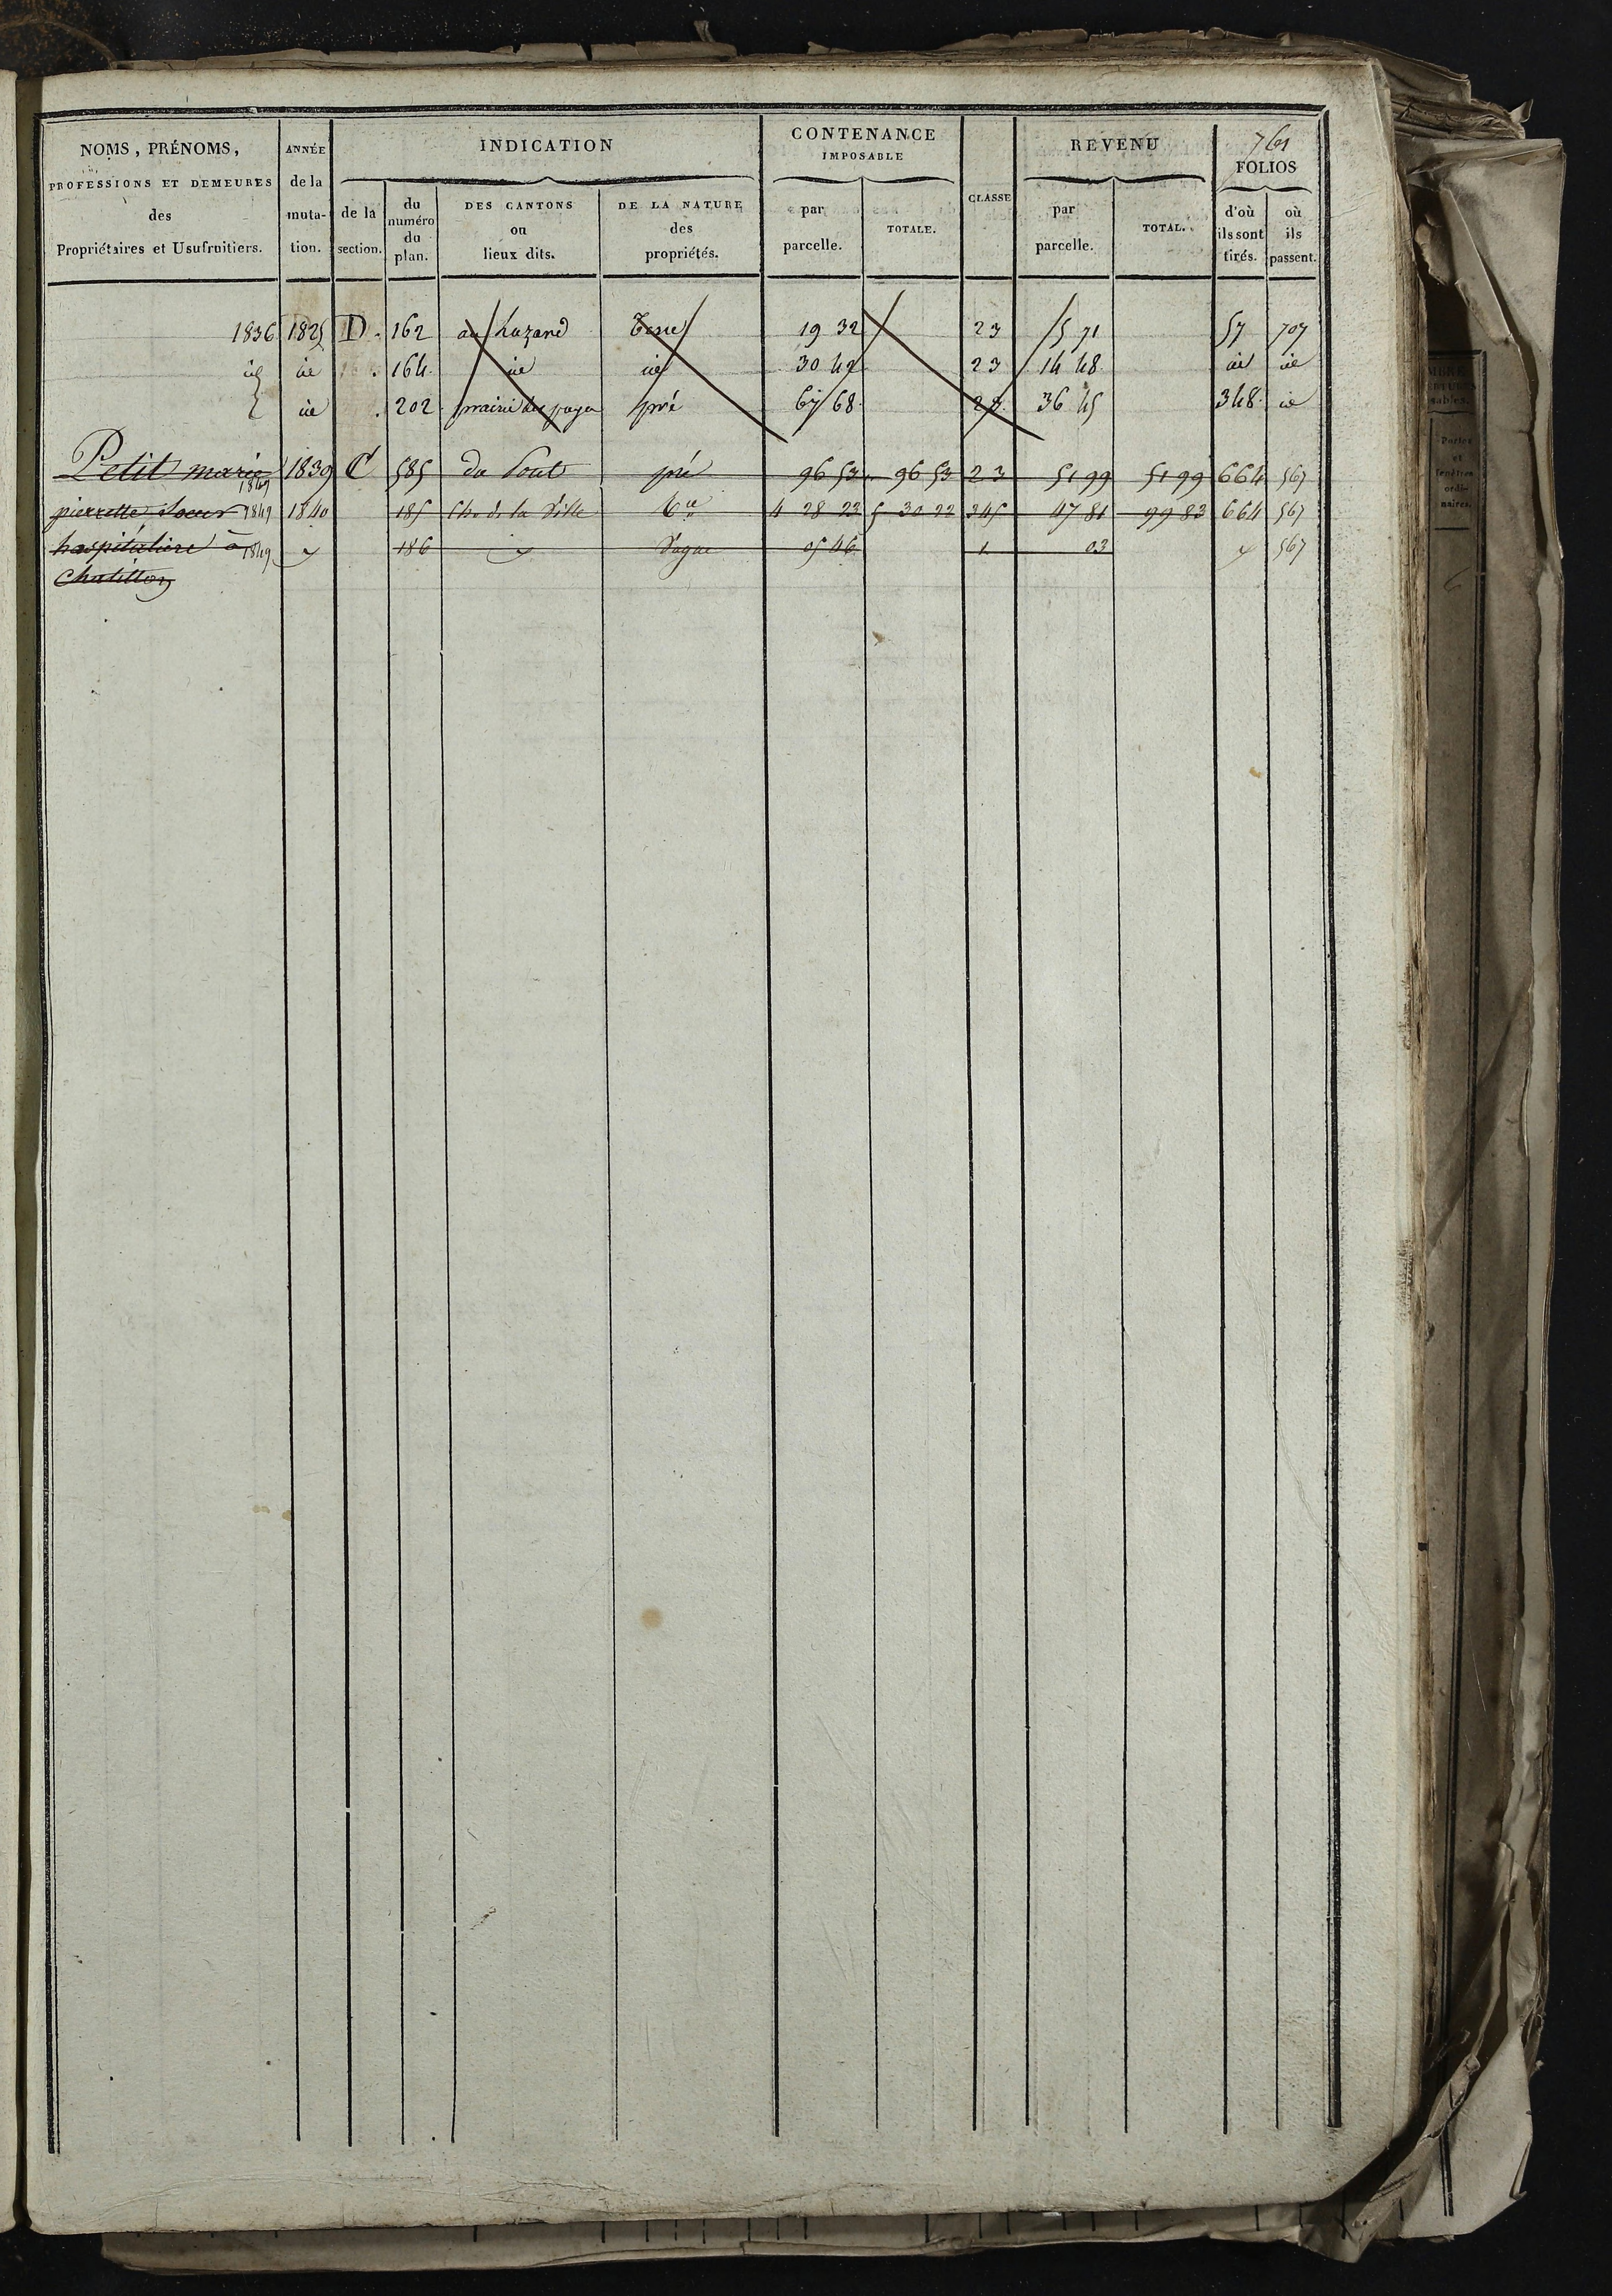 761
NOMS, PRÉNOMS,
PROFESSIONS ET DEMEURES
des
Propriétaires et Usufruitiers.
ANNÉE
de la
muta-
tion.
INDICATION
de la
section.
du
numéro
du
plan.
DES CANTONS
ou
lieux dits.
DE LA NATURE
des
propriétés.
CONTENANCE
IMPOSABLE
par
parcelle.
TOTALE.
CLASSE
REVENU
par
parcelle.
TOTAL.
FOLIOS
d'où
ils sont
tirés.
où
ils
passent.
1836 1825 D. 162 au hazard Terre 19 32 23 5 71 57 707
id id 164 id id 30 42 23 14 48 id id
id 202 prairie des pré 67 68 23 36 45 348 id
Petit marie 1849 1839 C 585 du pré 96 53 96 53 23 51 99 51 99 664 567
pierrette Soeur 1849 1840 185 Ch. de la Ville 4 28 23 5 30 22 345 47 81 99 83 664 567
hospitalière à 1849 186 Vague 05 46 1 03 567
Chatillon
MBRE
Portes
et
fenêtres
ordi-
naires.
6